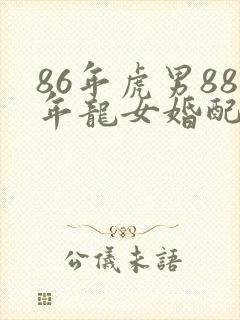 86年虎男88
年龍女婚配
公儀未語